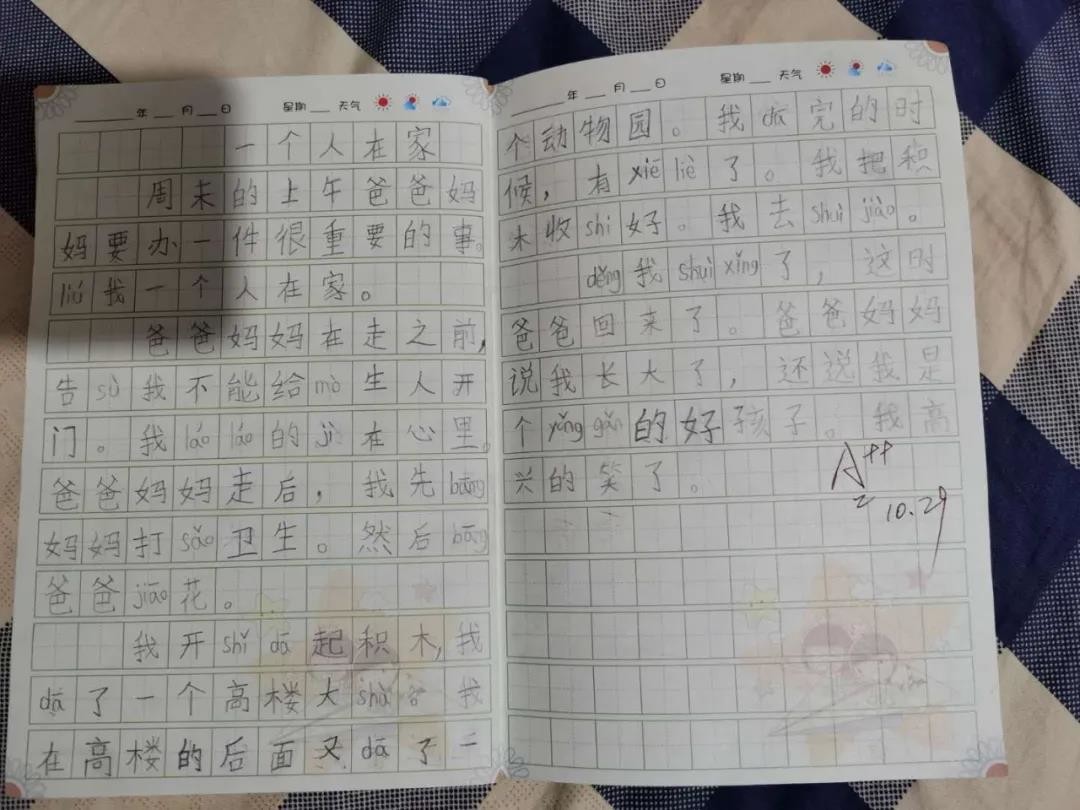 年 月 日 星期 天气
一个人在家
周末的上午爸爸妈
妈要办一件很重要的事。
liú我一个人在家。
爸爸妈妈在走之前,
告sù我不能给mò生人开
门。我láo láo的jì在心里。
爸爸妈妈走后，我先bāng
妈妈打sǎo卫生。然后bāng
爸爸jiāo花。
我开shǐ dā起积木,我
dā了一个高楼大shà。我
在高楼的后面又dā了一
年 月 日 星期 天气
个动物园。我dā完的时
候，有xiē liè了。我把积
木收shi好。我去shuì jiào。
děng我shuì xǐng了，这时
爸爸回来了。爸爸妈妈
说我长大了，还说我是
个yǒng gǎn的好孩子。我高
兴的笑了。
A++
10.29